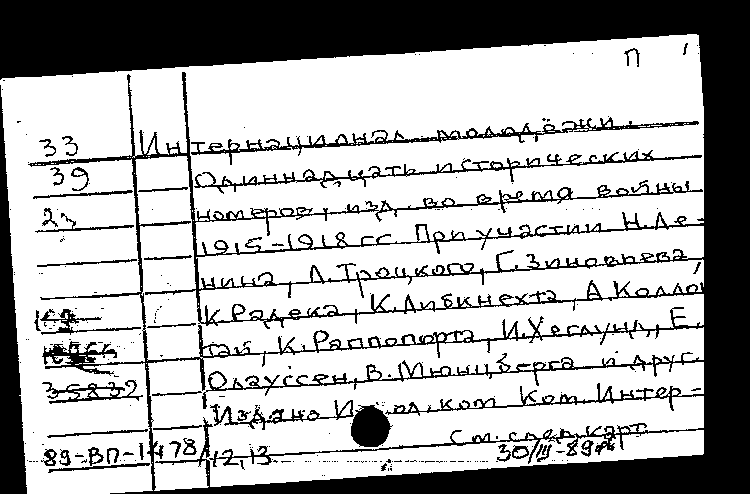 П
33 Интернационал молодёжи.
39 Одиннадцать исторических
23 номеров, изд. во время войны
1915-1918 гг. При участии Н. Ле-
нина, Л. Троцкого, Г. Зиновьева,
К. Радека, К. Либкнехта, А. Коллон
тай, К. Раппопорта, И. Хеглунд, Е.
35832 Олауссен, В. Мюнцберга и друг.
Издано Исполком Ком. Интер-
См. след. карт.
89-ВП-1478/12,13 30/III-89